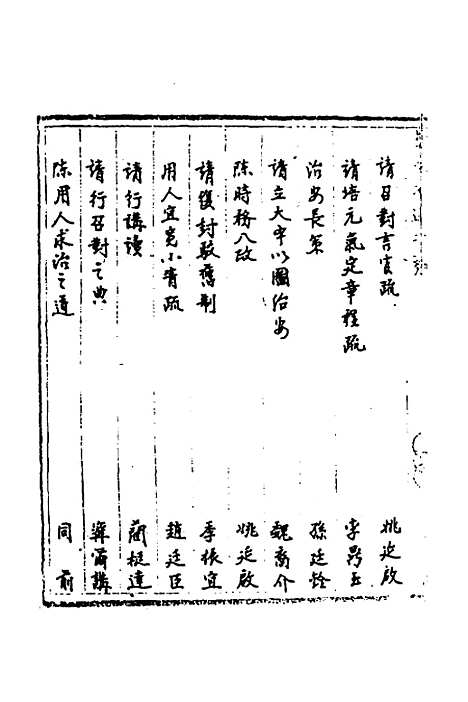 請召對言官疏　姚延啟
請培元氣定章程疏　李昌垣
治安長策　孫廷銓
請立大本以圖治安　魏裔介
陳時務八政　姚延啟
請復封駁舊制　季振宜
用人宜寬小眚疏　趙廷臣
請行講讀　藺挺達
請行召對之典　龔甯講
陳用人求治之道　同前